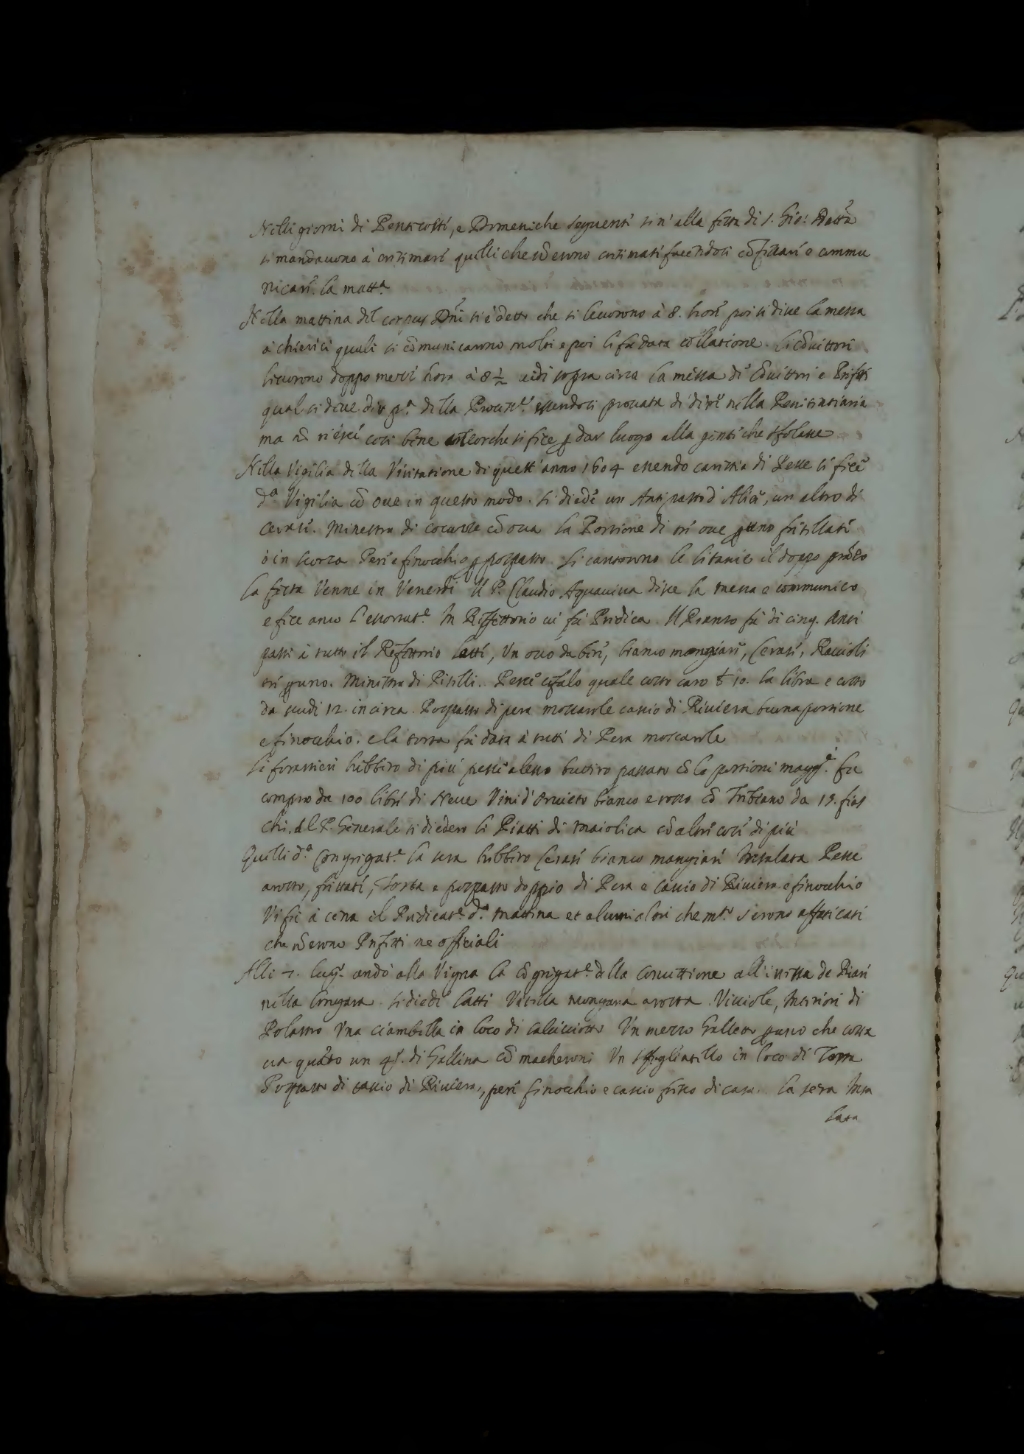 Nelli giorni di Pentecoste, e Domeniche seguenti sin' alla festa di S. Gio: Batta
si mandavono à cresimare quelli che nō erono cresimati facendosi cōfessare o commu
nicare la matt.ᵃ
Nella mattina del corpus Dñi si è detto che si levorono à 8. hore poi si disse la messa
a chierici quali si cōmunicarono molti e poi li fu data collatione. Li Cōvittori
levorono doppo meza hora à 8½ e di sopra circa la messa di Cōvittori e Prefetti
qual si disse di p.ᵃ della Process.ᵉ essendosi provata di dire nella Penitentiaria
ma nō riesce cosi bene ancorche si fece p dar luogo alla gente che sfolasse
Nella Vigilia della Visitatione di quest' anno 1604 essendo carestia di Pesce si fece
d.ᵃ Vigilia cō ove in questo modo. Si diede un Antipasto d' Alice, un altro di
Cerase. Minestra di cocuzze cō ova la Portione di tre ove p uno frittellate
ò in scorza Pere e finocchio p pospasto. Si cantorono le litanie il doppo prāzo
La festa venne in Venerdi Il P. Claudio Aquaviva disse la messa e communicò
e fece anco l' essortat.ᵉ In Refettorio vi fu Predica. Il Pranzo fu di cinq. Anti
pasti à tutto il Refettorio latte, un ovo da bere, bianco mangiare, Cerase, Ravioli
tre p uno. Minestra di Piselli. Pesce cefalo quale costo caro b 10. la libra e costo
da scudi 12. in circa Pospasto di pera moscarole cascio di Riviera buona portione
e finocchio. e la torta fu data à tutti di Pera moscarole
Li forastieri hebbero di più pesce alesso butiro passato cō le portioni magg.ⁱ fu
compro da 100 libre di Neve Vini d' Orvieto bianco e rosso cō Trebiano da 15. fias
chi, al P. Generale si diedero li Piatti di maiolica cō altre cose di più
Quelli d.ᵃ Congregat.ᵉ la sera hebbero Cerase bianco mangiare Insalata Pesce
arosto, frittate, Torta e pospasto doppio di Pera e cascio di Riviera e finocchio
Vi fu à cena il Predicat.ᵉ d.ᵃ mattina et alcuni altri che m.ᵗᵒ s' erono affaticati
che nō erono Prefetti ne officiali
Alli 7. lug.ᵒ andò alla Vigna la Cōgregat.ᵉ della Concettione all' istessa de Piari
nella longara. Si diede latte Vitella mongana arosta Visciole, Interiori di
Polastro Una ciambella in loco di calicioni Un mezzo Galletto p uno che costa
va quāto un q.ᵗᵒ di Gallina cō macheroni Un sfogliatello in loco di Torta
Pospasto di cascio di Riviera, pere finocchio e cascio fresco di casa. La sera Insa
lata